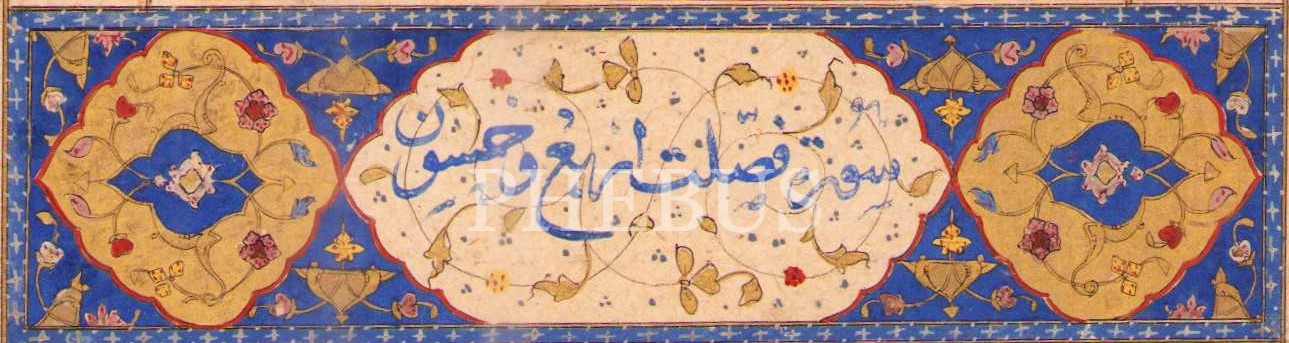 سورة فصّلت اربعُ و خمسون
PHEBUS